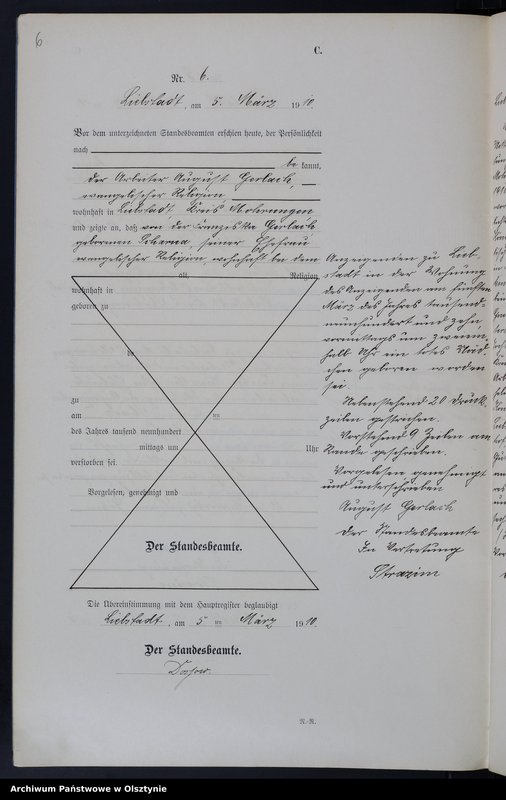 6
C.
Nr. 6.
Liebstadt, am 5. März 1910.
Vor dem unterzeichneten Standesbeamten erschien heute, der Persönlichkeit
nach
be kannt,
der Arbeiter August Gerlach,
evangelischer Religion
wohnhaft in Liebstadt, Kreis Mohrungen
und zeigte an, daß von der Franziska Gerlach
geborenen seiner Ehefrau
evangelischer Religion, wohnhaft bei dem
alt, Religion,
wohnhaft in
geboren zu
zu
am un
des Jahres tausend neunhundert
mittags um Uhr
verstorben sei.
Vorgelesen, genehmigt und
Der Standesbeamte.
Anzeigenden zu Lieb-
stadt in der Wohnung
des Anzeigenden am fünften
März des Jahres tausend-
neunhundert und zehn,
vormittags um zweiein-
halb Uhr ein totes Mäd-
chen geboren worden
sei
Nebenstehend 20 Druck-
zeilen gestrichen.
Vorstehend 9 Zeilen am
Rande geschrieben.
Vorgelesen genehmigt
und unterschrieben
August Gerlach
Der Standesbeamte
In Vertretung
Die Übereinstimmung mit dem Hauptregister beglaubigt
Liebstadt, am 5 ten März 1910.
Der Standesbeamte.
N.-R.
Archiwum Państwowe w Olsztynie